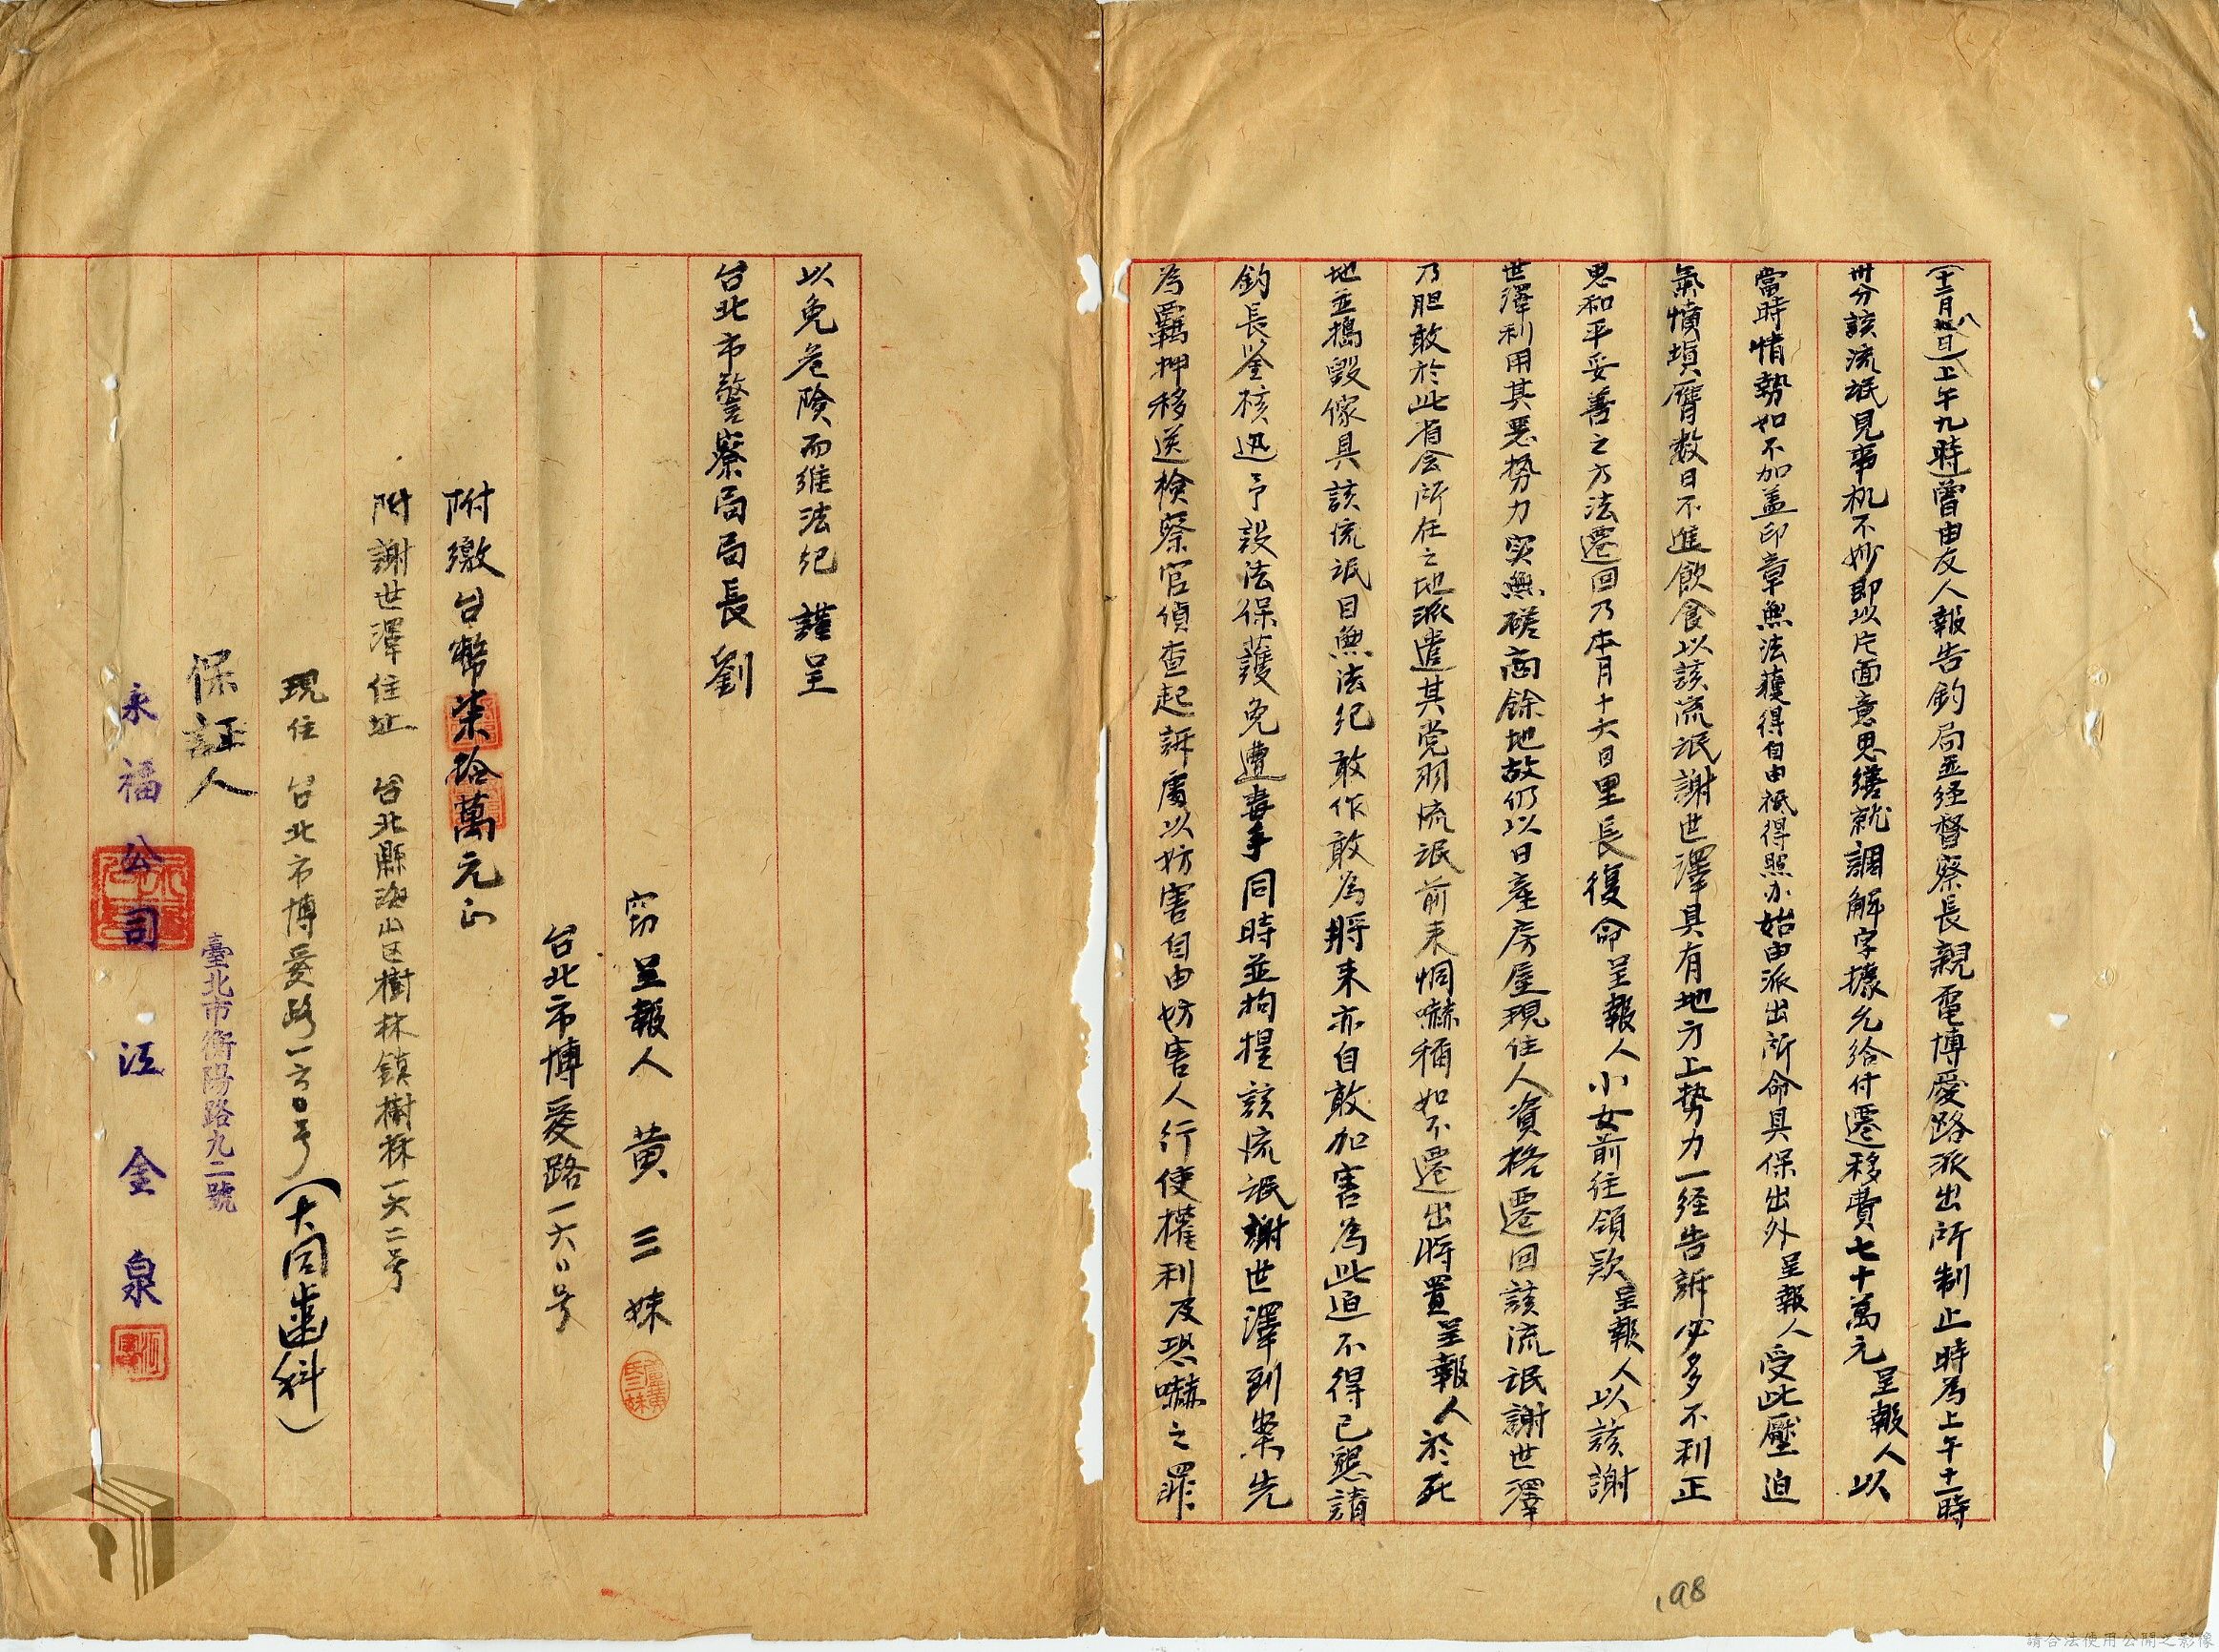 (十二月廿八日)上午九時曾由友人報告鈞局並経督察長親電博愛路派出所制止時為上午十一時
卅分該流氓見事机不妙即以片面意思繕就調解字據允給付遷移費七十萬元呈報人以
當時情勢如不加盖印章無法獲得自由祇得照办始由派出所命具保出外呈報人受此壓迫
氣憤填膺数日不進飲食以該流氓謝世澤具有地方上势力一経告訴必多不利正
思和平妥善之方法遷回乃本月十六日里長復命呈報人小女前往領款呈報人以該謝
世澤利用其悪势力实無磋商餘地故仍以日產房屋現住人資格遷回該流氓謝世澤
乃胆敢於此省会所在之地派遣其党羽流氓前来恫嚇稱如不遷出将置呈報人於死
地並搗毀傢具該流氓目無法紀敢作敢為将来亦自敢加害為此迫不得已懇請
鈞長鉴核迅予設法保護免遭毒手同時並拘提該流氓謝世澤到案先
為羈押移送檢察官偵查起訴處以妨害自由妨害人行使權利及恐嚇之罪
198
以免危險而維法紀 謹呈
台北市警察局局長劉
窃呈報人 黄三妹
盧黄氏三妹
台北市博爱路一六〇号
附繳台幣柒拾萬元正
附謝世澤住址 台北縣海山区樹林鎮樹林一六二号
現住 台北市博爱路一六〇号(大同歯科)
保証人
臺北市衡陽路九二號
永福公司 江金泉
請合法使用公開之影像